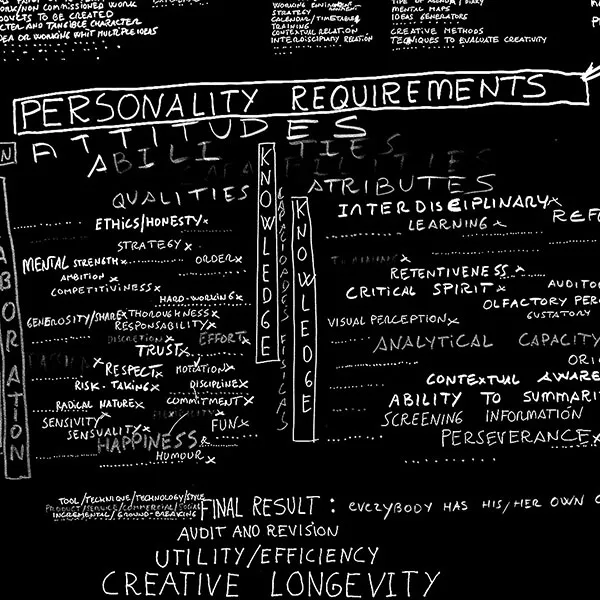 WORKING ENVIRONMENT
STRATEGY
CALENDAR/TIMETABLE
TRAINING
CONTEXTUAL RELATION
INTERDISCIPLINARY RELATION
MENTAL MAPS
IDEAS GENERATORS
CREATIVE METHODS
TECNIQUES TO EVALUATE CREATIVITY
/NON COMMISSIONED WORK
TO BE CREATED
AND TANGIBLE CHARACTER
OR WORKING WHIT MULTIPLE IDEAS
PERSONALITY REQUIREMENTS
ATTITUDES
ABILITIES
QUALITIES
ATRIBUTES
KNOWLEDGE
CAPACIDADES FISICAS
KNOWLEDGE
ABORATION
ETHICS/HONESTY
STRATEGY
MENTAL STRENGTH
ORDER
AMBITION
COMPETITIVINESS
HARD-WORKING
GENEROSITY/SHARE
THOROUGHNESS
RESPONSABILITY
DISCRETION
EFFORT
TRUST
RESPECT
MOTIVATION
RISK-TAKING
DISCIPLINE
RADICAL NATURE
COMMITMENT
SENSIVITY
FUN
SENSUALITY
HAPPINESS &
HUMOUR
INTERDISCIPLINARY
LEARNING
RETENTIVENESS
CRITICAL SPIRIT
OLFACTORY
GUSTATORY
VISUAL PERCEPTION
ANALYTICAL CAPACITY
CONTEXTUAL
ABILITY TO
SCREENING INFORMATION
PERSEVERANCE
TOOL/TECHNIQUE/TECHNOLOGY/STYLE
PRODUCT/SERVICE/COMMERCIAL/SOCIAL
INCREMENTAL/GROUND-BREAKING
FINAL RESULT : EVERYBODY HAS HIS/HER OWN
AUDIT AND REVISION
UTILITY/EFFICIENCY
CREATIVE LONGEVITY